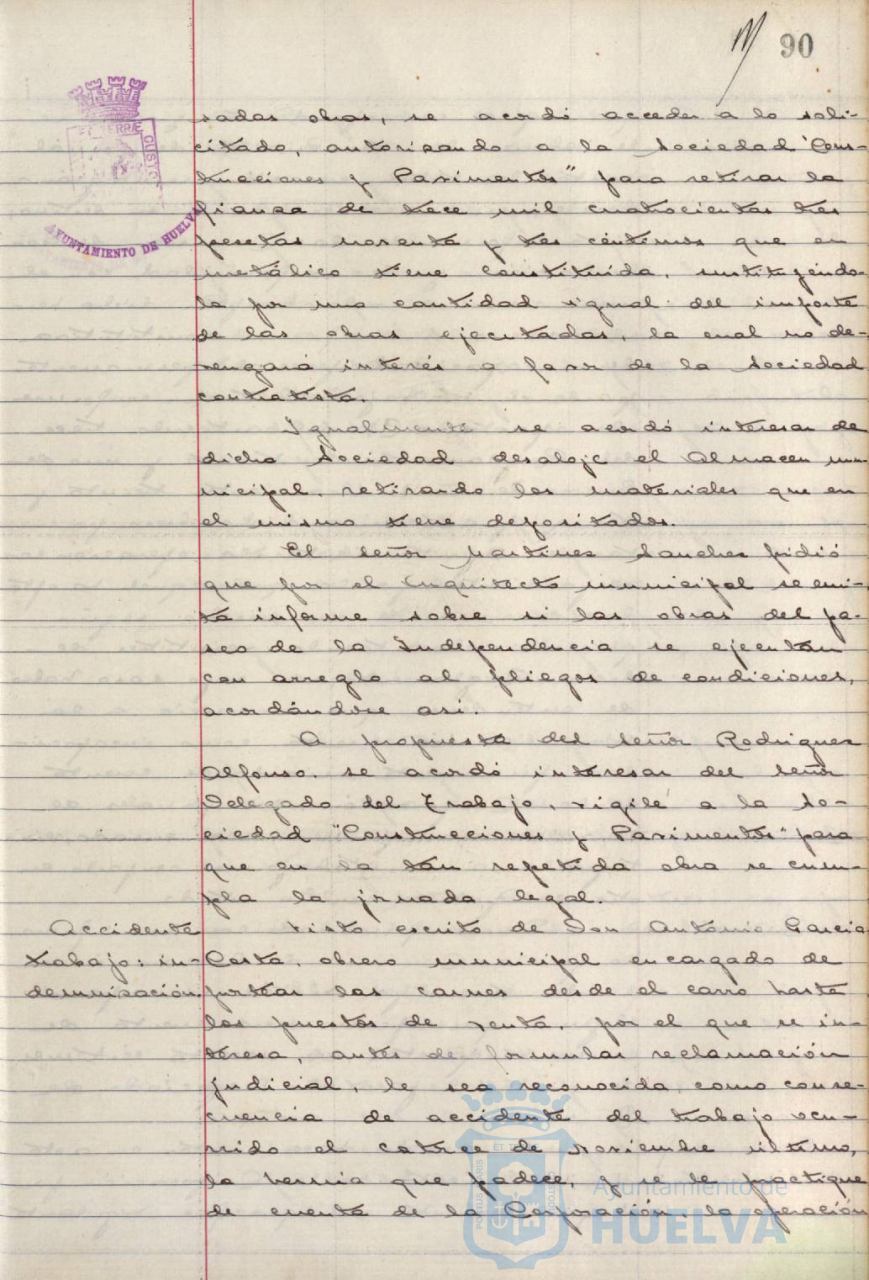 90
sadas obras, se acordó acceder a lo soli-
citado, autorizando a la Sociedad "Cons-
trucciones y Pavimentos" para retirar la
fianza de trece mil cuatrocientas tres
pesetas noventa y tres céntimos que en
metálico tiene constituida, sustituyéndo-
la por una cantidad igual del importe
de las obras ejecutadas, la cual no de-
vengará interés a favor de la Sociedad
contratista.
Igualmente se acordó interesar de
dicha Sociedad desaloje el Almacen mu-
nicipal, retirando los materiales que en
el mismo tiene depositados.
El señor Martinez Sanchez pidió
que por el Arquitecto municipal se emi-
ta informe sobre si las obras del pa-
seo de la Independencia se ejecutan
con arreglo al pliegos de condiciones,
acordándose así.
A propuesta del señor Rodriguez
Alfonso, se acordó interesar del señor
Delegado del Trabajo, vigile a la So-
ciedad "Construcciones y Pavimentos" para
que en la tan repetida obra se cum-
pla la jornada legal.
Accidente
trabajo: in-
demnización.
Visto escrito de Don Antonio Garcia
Costa, obrero municipal encargado de
portear las carnes desde el carro hasta
los puestos de venta, por el que se in-
teresa, antes de formular reclamación
judicial, le sea reconocida como conse-
cuencia de accidente del trabajo ocu-
rrido el catorce de noviembre último,
la hernia que padece, y se le practique
de cuenta de la Corporación la operación
ET TERRE
CUSTO
AYUNTAMIENTO DE HUELVA
Ayuntamiento de
HUELVA